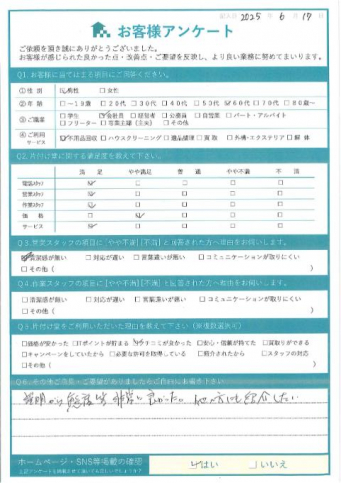 記入日 2025 年 6 月 17 日
お客様アンケート
ご依頼を頂き誠にありがとうございました。
お客様が感じられた良かった点・改善点・ご要望を反映し、より良い業務に努めてまいります。
Q1.お客様に当てはまる項目にご回答ください。
①性別 ☑男性 □女性
②年齢 □~19歳 □20代 □30代 □40代 □50代 ☑60代 □70代 □80歳~
③ご職業 □学生 ☑会社員 □経営者 □公務員 □自営業 □パート・アルバイト
□フリーター □専業主婦(主夫) □その他
④ご利用サービス ☑不用品回収 □ハウスクリーニング □遺品整理 □買取 □外構・エクステリア □解体
Q2.片付け業に関する満足度を教えて下さい。
満足 やや満足 普通 やや不満 不満
電話スタッフ ☑ □ □ □ □
営業スタッフ ☑ □ □ □ □
作業スタッフ ☑ □ □ □ □
価格 □ ☑ □ □ □
サービス ☑ □ □ □ □
Q3.営業スタッフの項目に「やや不満」「不満」と回答された方へ理由をお伺いします。
☑清潔感が無い □対応が遅い □言葉遣いが悪い □コミュニケーションが取りにくい
□その他( )
Q4.作業スタッフの項目に「やや不満」「不満」と回答された方へ理由をお伺いします。
□清潔感が無い □対応が遅い □言葉遣いが悪い □コミュニケーションが取りにくい
□その他( )
Q5.片付け堂をご利用いただいた理由を教えて下さい(※複数選択可)
□価格が安かった □Tポイントが貯まる ☑クチコミが良かった □安心・信頼が持てた □買取りができる
□キャンペーンをしていたから □必要な許可を取得している □紹介されたから □スタッフの対応
□その他( )
Q6.その他ご意見・ご要望がありましたらご自由にお書き下さい
非常に良かった。他の方にも紹介したい
ホームページ・SNS等掲載の確認
☑はい □いいえ